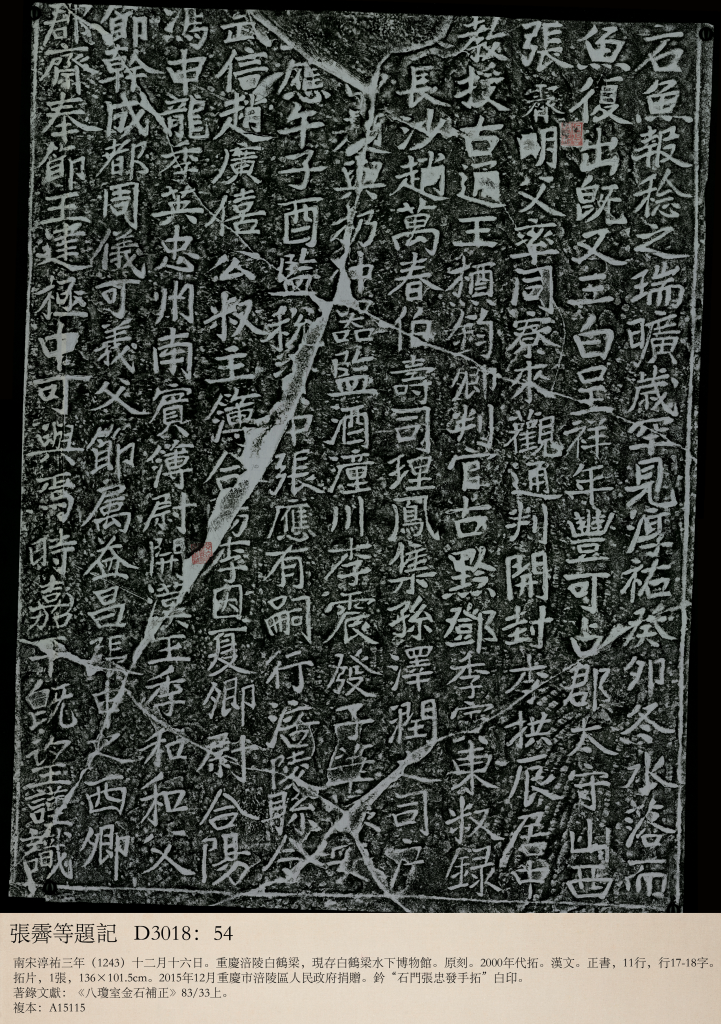 石魚報稔之瑞曠歲罕見淳祐癸卯冬水落而
魚復出既又三白呈祥年豐可占郡太守山西
張霽明父率同寮來觀通判開封李拱辰居中
教授古通王鈞卿判官古黔鄧季寅東叔錄
長沙趙萬春伯壽司理鳳集孫澤潤之司戶
與扔仲器監酒潼川李震發子華安
應午子酉監稅張應有嗣行涪陵縣令
武信趙廣僖公叔主簿合李因夏卿尉合陽
馮申龍季英忠州南賓簿尉開漢王季和和父
節幹成都周儀可義父節屬益昌張申之西卿
郡齋奉節王建極中可與焉時嘉平既望謹識
張霽等題記 D3018：54
南宋淳祐三年（1243）十二月十六日。重慶涪陵白鶴梁，現存白鶴梁水下博物館。原刻。2000年代拓。漢文。正書，11行，行17-18字。
拓片，1張，136×101.5cm。2015年12月重慶市涪陵區人民政府捐贈。鈐“石門張忠發手拓”白印。
著錄文獻：《八瓊室金石補正》83/33上。
複本：A15115